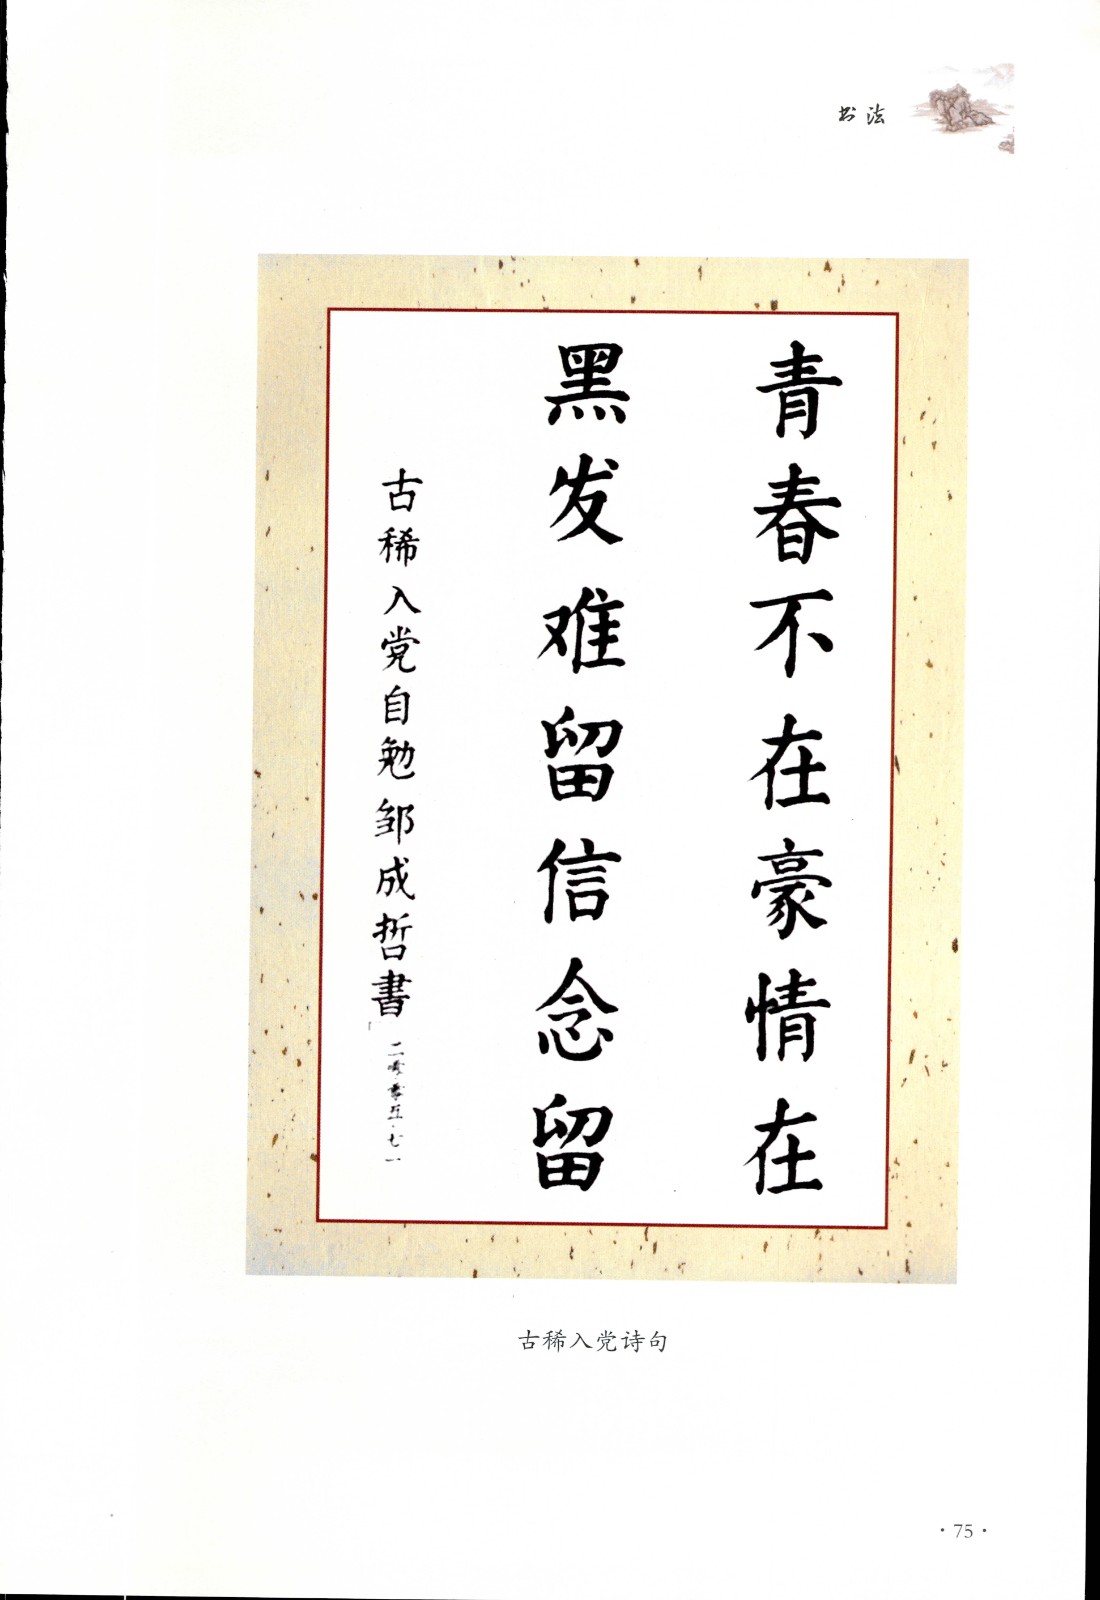 书法
青春不在豪情在
黑发难留信念留
古稀入党自勉邹成哲書
二零零五·七一
古稀入党诗句
·75·